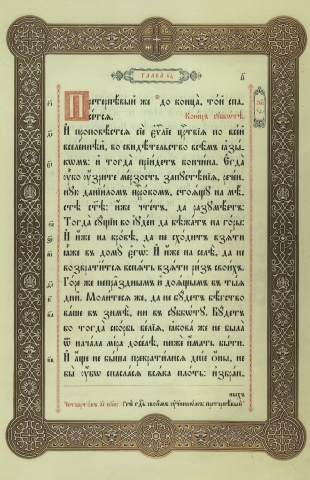 Глава к҃д
Претерпѣвый же до конца, той спа
сется. Конецъ субботѣ.
И проповѣстся сіе еѵⷢ҇ліе цр҃твія по всей
вселеннѣй, во свидѣтельство всѣмъ ꙗзы
кѡмъ: и тогда пріидетъ кончина. Егда
ᲂубо ᲂузрите мерзость запустѣнія, речен
ную даніиломъ прⷪ҇рокомъ, стоящу на мѣ
стѣ ст҃ѣ: иже чтетъ, да разумѣетъ:
Тогда сущіи во іудеи да бѣжатъ на горы:
И иже на кровѣ, да не сходитъ взяти
ꙗже въ дому єгѡ: И иже на селѣ, да не
возвратится вспять взяти ризъ своихъ.
Горе же непраздным и доящымъ въ тыя
дни. Молитеся же, да не будетъ бѣгство
ваше въ зимѣ, ни въ субботу. Будетъ
бо тогда скорбь велія, ꙗкова же не была
ѿ начала міра доселѣ, ниже имать быти.
И аще не быша прекратилися дніе оны, не
бы ᲂубѡ спаслася всяка плоть: избран
ныхъ